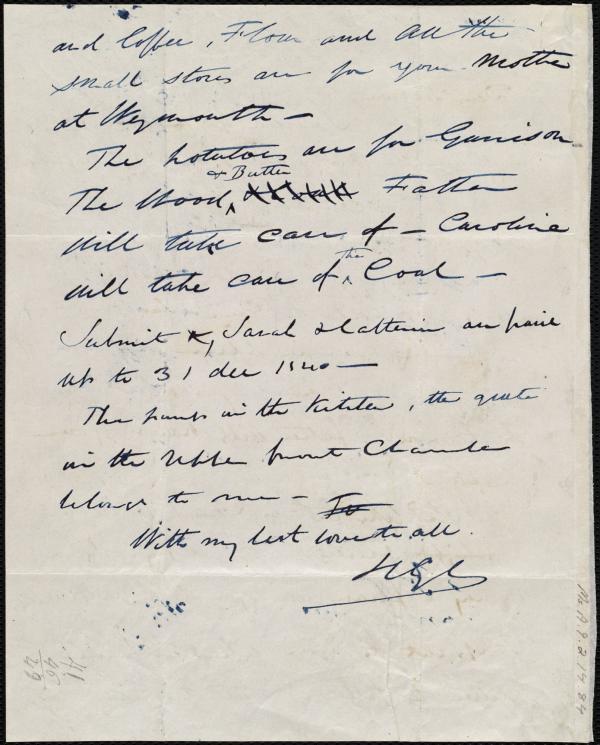 and Coffee, Flour and all the
small stores are for your Mother
at Weymouth —
The potatoes are for Garrison
& Butter
The Wood, Father
will take care of — Caroline
will take care of the Coal —
Submit &, Sarah & Catherine are paid
up to 31 dec 1840 —
The pump in the Kitchen, the grate
in the Upper front Chamber
belongs to me —
With my best love to all.
HGC
Ms.A.9.2.14.84